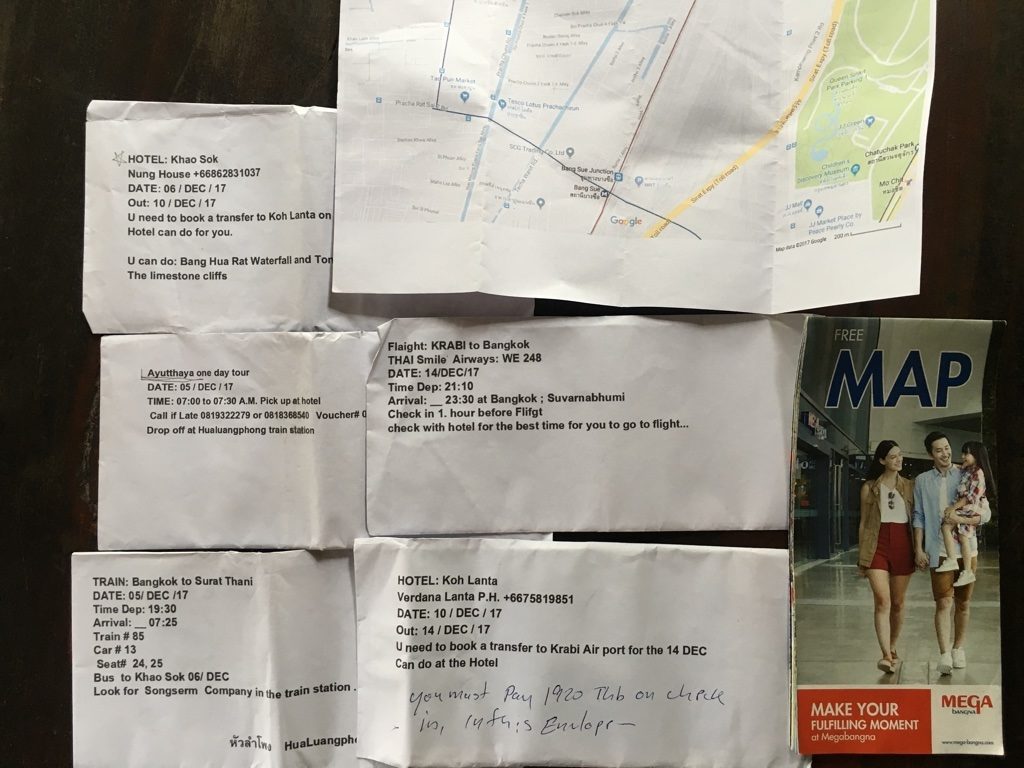 Tao Pun Market
Pracha Rat Sai 2 Rd
Tesco Lotus Prachacheun
SCG Trading Co Ltd
Bang Sue Junction
ชุมทางบางซื่อ
Bang Sue
สถานีบางซื่อ
MRT
Google
Sirat Expy (Toll road)
Sirat Expy (Toll road)
(Toll road)
Queen Sirikit
Park Parking
JJ Green
Chatuchak Park
Children's
Discovery Museum
Mo Chit
หมอชิต
JJ Mall
JJ Market Place by
Peace Pearly Co.
Map data ©2017 Google
200 m
HOTEL: Khao Sok
Nung House +66862831037
DATE: 06 / DEC / 17
Out: 10 / DEC / 17
U need to book a transfer to Koh Lanta on
Hotel can do for you.
U can do: Bang Hua Rat Waterfall and Ton
The limestone cliffs
Ayutthaya one day tour
DATE: 05 / DEC / 17
TIME: 07:00 to 07:30 A.M. Pick up at hotel
Call if Late 0819322279 or 0818368540 Voucher# 0
Drop off at Hualuangphong train station
Flaight: KRABI to Bangkok
THAI Smile Airways: WE 248
DATE: 14/DEC/17
Time Dep: 21:10
Arrival: __ 23:30 at Bangkok ; Suvarnabhumi
Check in 1. hour before Flifgt
check with hotel for the best time for you to go to flight...
TRAIN: Bangkok to Surat Thani
DATE: 05/ DEC /17
Time Dep: 19:30
Arrival: __ 07:25
Train # 85
Car # 13
Seat# 24, 25
Bus to Khao Sok 06/ DEC
Look for Songserm Company in the train station .
หัวลำโพง HuaLuangpho
HOTEL: Koh Lanta
Verdana Lanta P.H. +6675819851
DATE: 10 / DEC / 17
Out: 14 / DEC / 17
U need to book a transfer to Krabi Air port for the 14 DEC
Can do at the Hotel
you must Pay 1920 Thb on check
- in, in this Envlope -
FREE
MAP
MAKE YOUR
FULFILLING MOMENT
at Megabangna
MEGA
BANGNA
www.mega-bangna.com